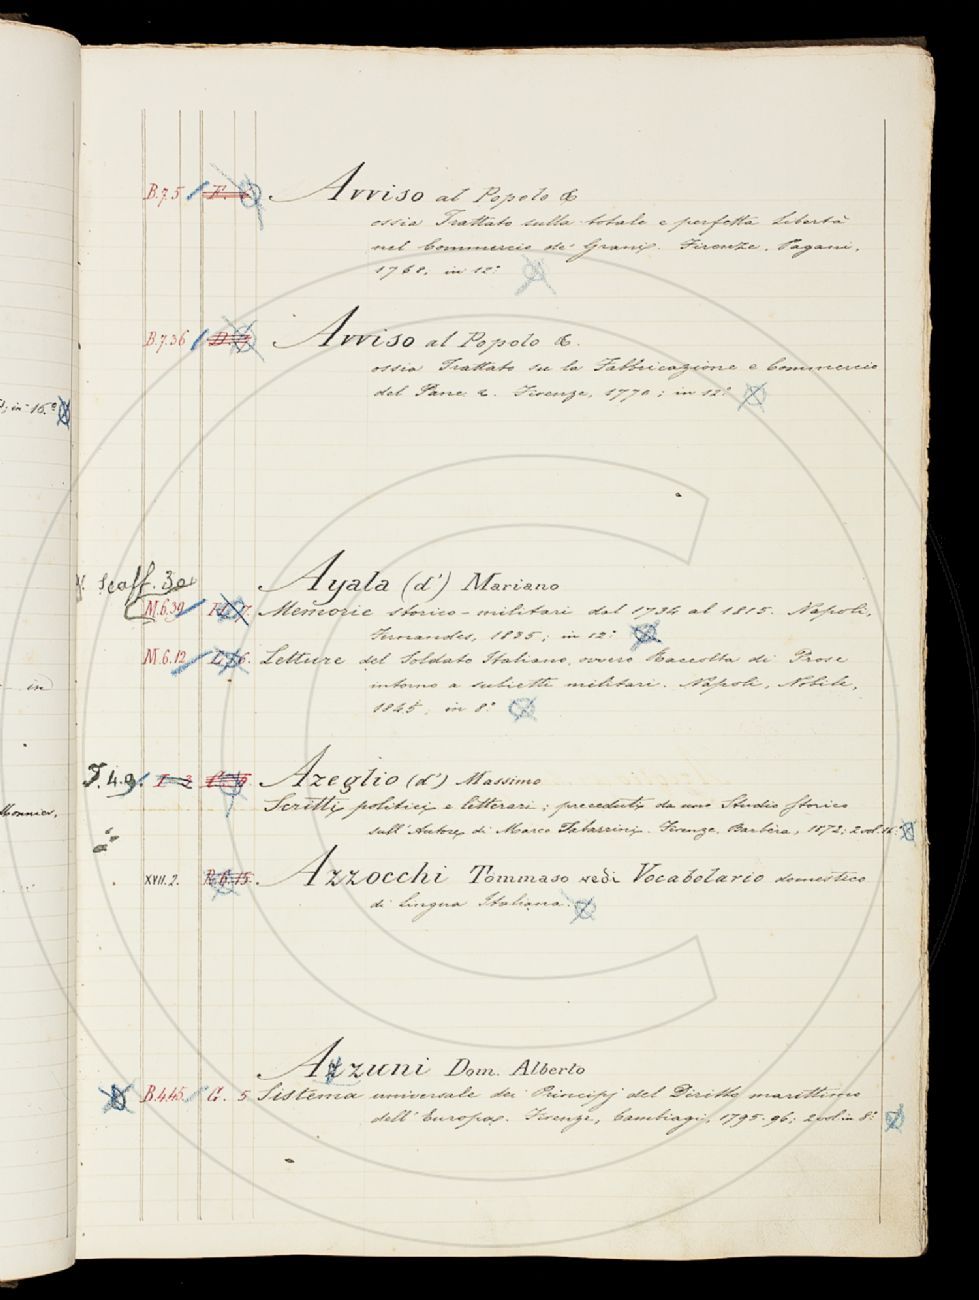 B.7.5 Avviso al Popolo &
ossia Trattato sulla totale e perfetta Libertà
nel Commercio de' Grani. Firenze, Pagani,
1768, in 12°
B.7.36 D. Avviso al Popolo &.
ossia Trattato su la Fabbricazione e Commercio
del Pane &. Firenze, 1770; in 12°
; in-16.°
Scaff. 30
Ayala (d') Mariano
M.6.39 Memorie storico-militari dal 1734 al 1815. Napoli,
Fernandes, 1835; in 12°
M.6.12 L. 6. Letture del Soldato Italiano, ovvero Raccolta di Prose
intorno a subietti militari. Napoli, Nobile,
1845, in 8°
in
T.4.9. I 2 Azeglio (d') Massimo
Scritti politici e letterari; preceduti da uno Studio storico
sull'Autore di Marco Tabarrini. Firenze, Barbèra, 1872; 2 vol. 16°
Monnier,
XVII.2. R.6.15. Azzocchi Tommaso vedi Vocabolario domestico
di lingua Italiana.
Azzuni Dom. Alberto
B.4.45 G. 5 Sistema universale dei Principj del Diritto marittimo
dell'Europa. Firenze, Cambiagi, 1795-96; 2 vol. in 8°
C